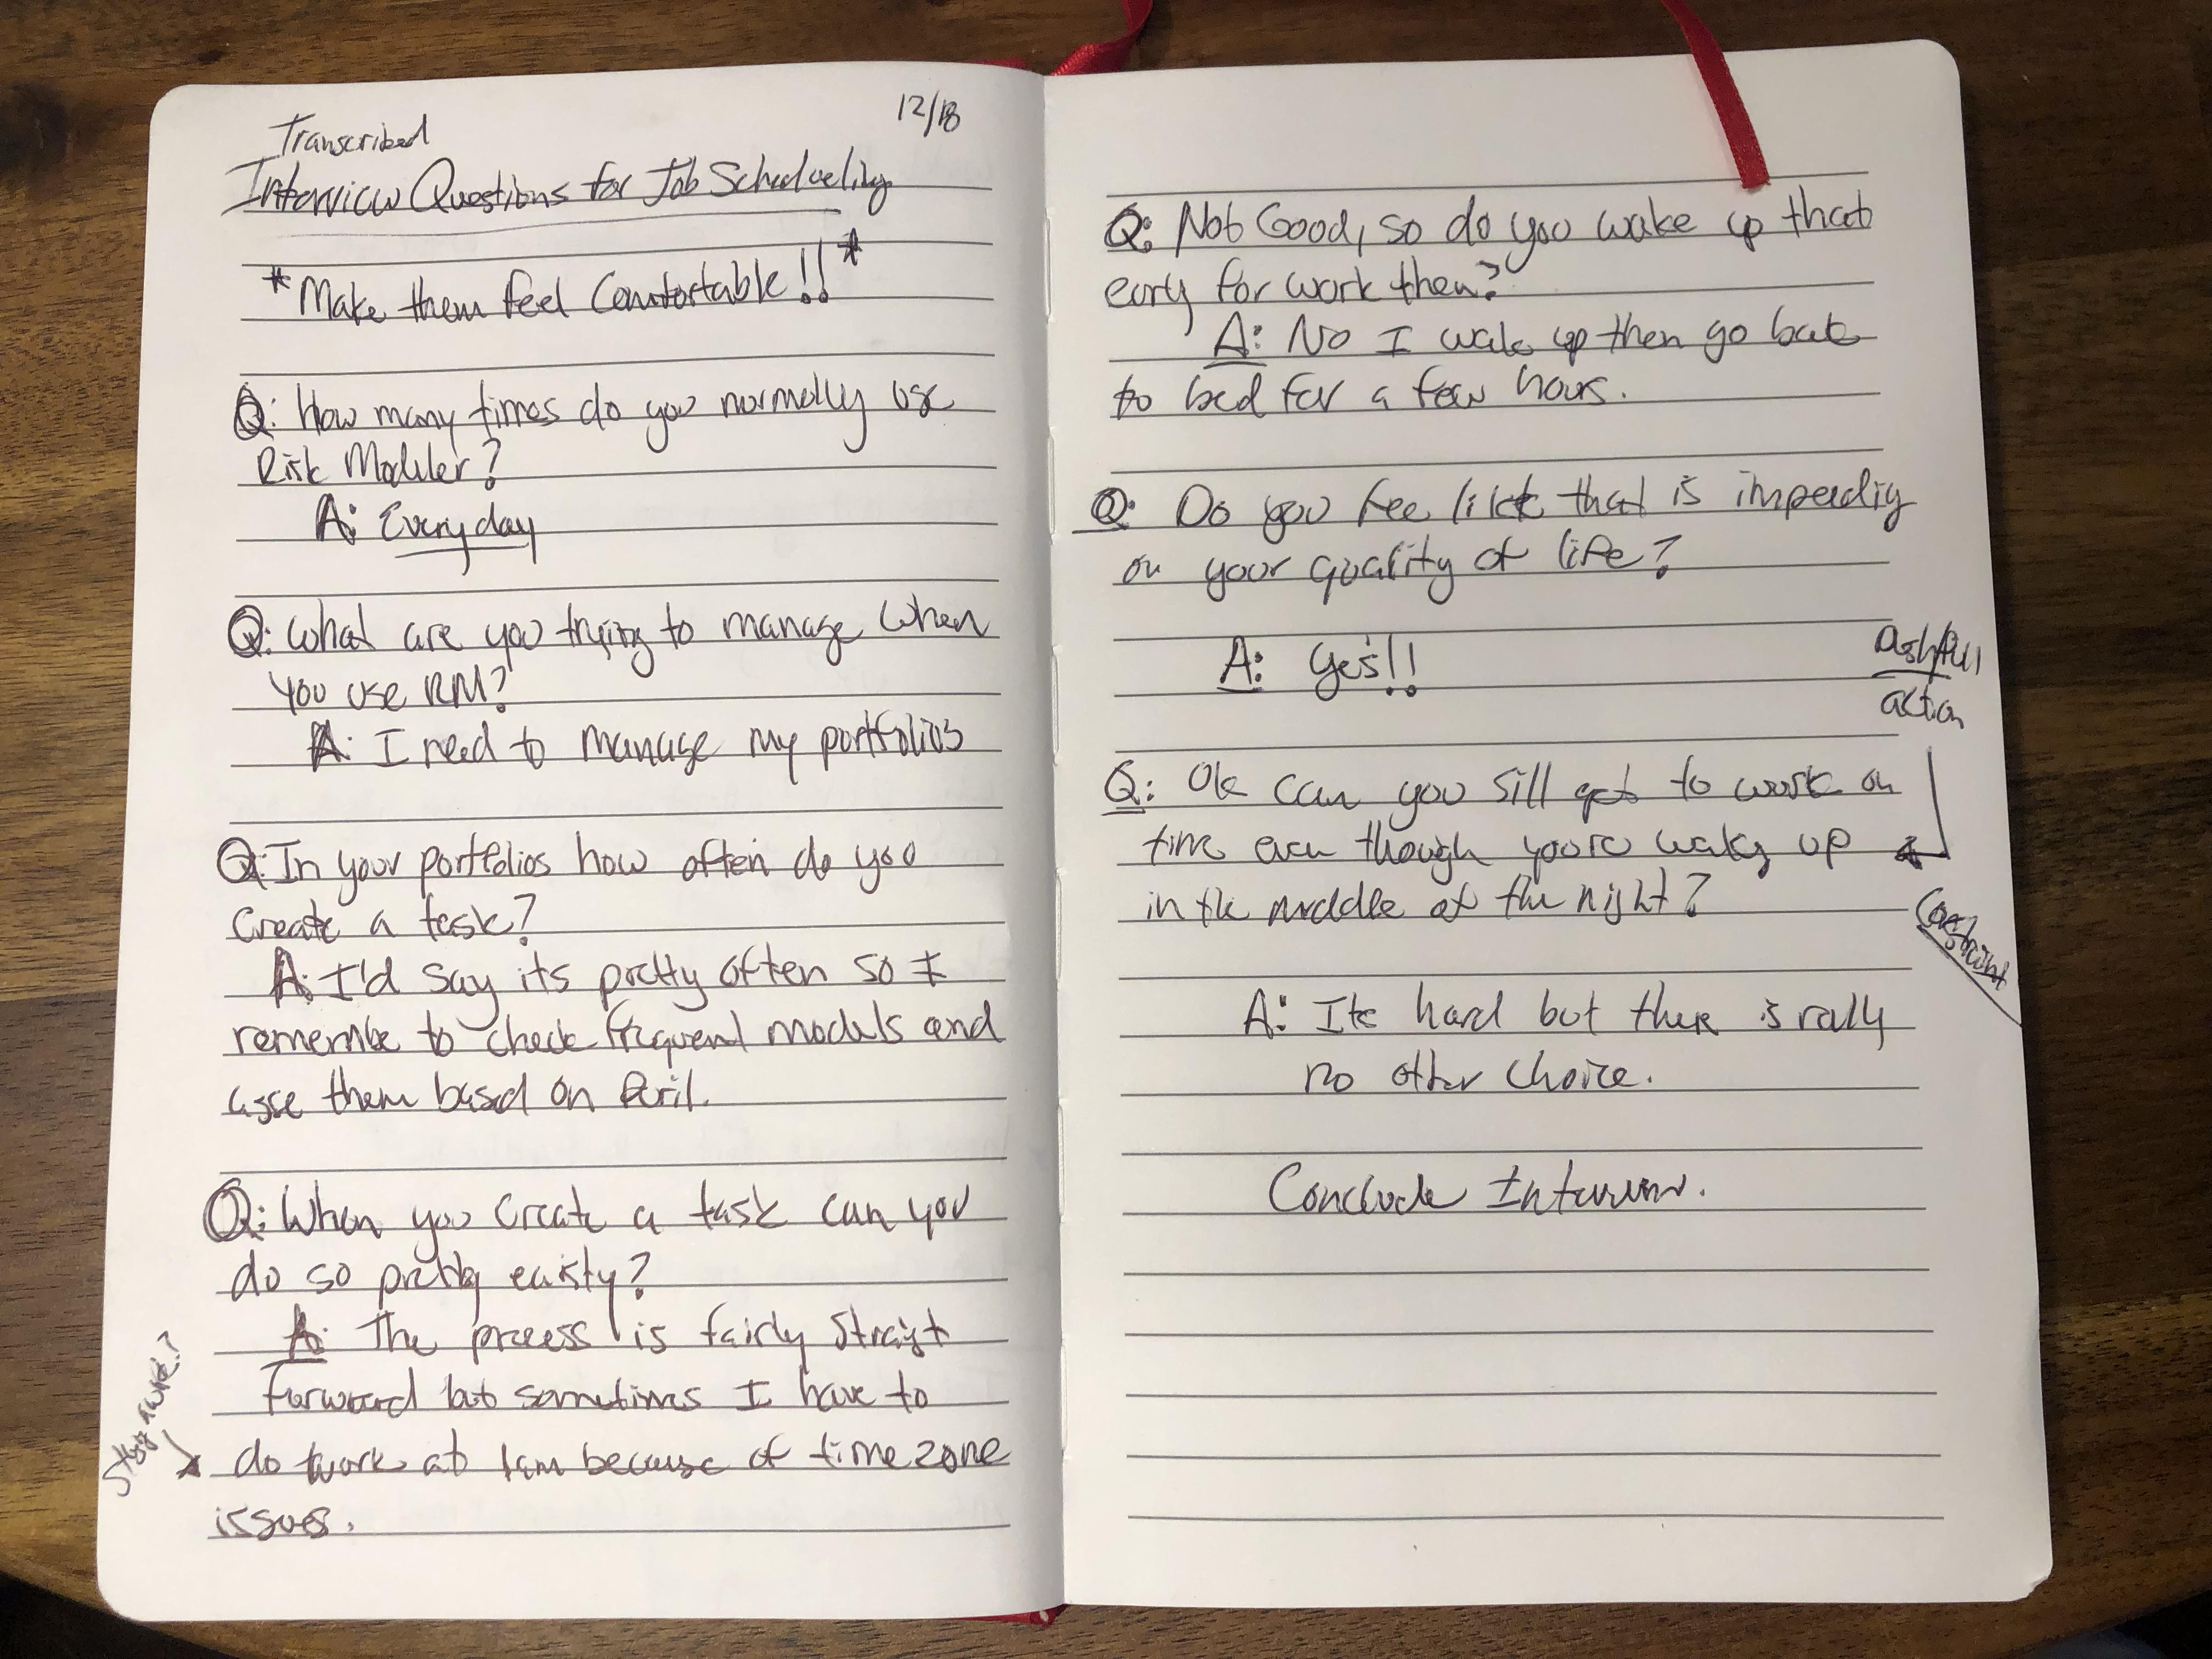 12/18
Transcribed
Interview Questions for Job Schedueling
*Make them feel Comfortable!!*
Q: How many times do you normally use
Risk Modeler?
A: Everyday
Q: What are you trying to manage when
you use RM?
A: I need to manage my portfolios
Q: In your portfolios how often do you
create a task?
A: I'd say its pretty often so I
remember to check frequent models and
them based on Peril.
Q: When you create a task can you
do so pretty easily?
A: The process is fairly
forward but sometimes I have to
do work at 1am because of time zone
issues.
Q: Not Good, so do you wake up that
early for work then?
A: No I wake up then go back
to bed for a few hours.
Q: Do you fee like that is
on your quality of life?
A: Yes!!
action
Q: Ok can you sill get to work on
time even though youre waking up
in the middle of the night?
Constraint
A: Its hard but there is really
no other choice.
Conclude Interview.